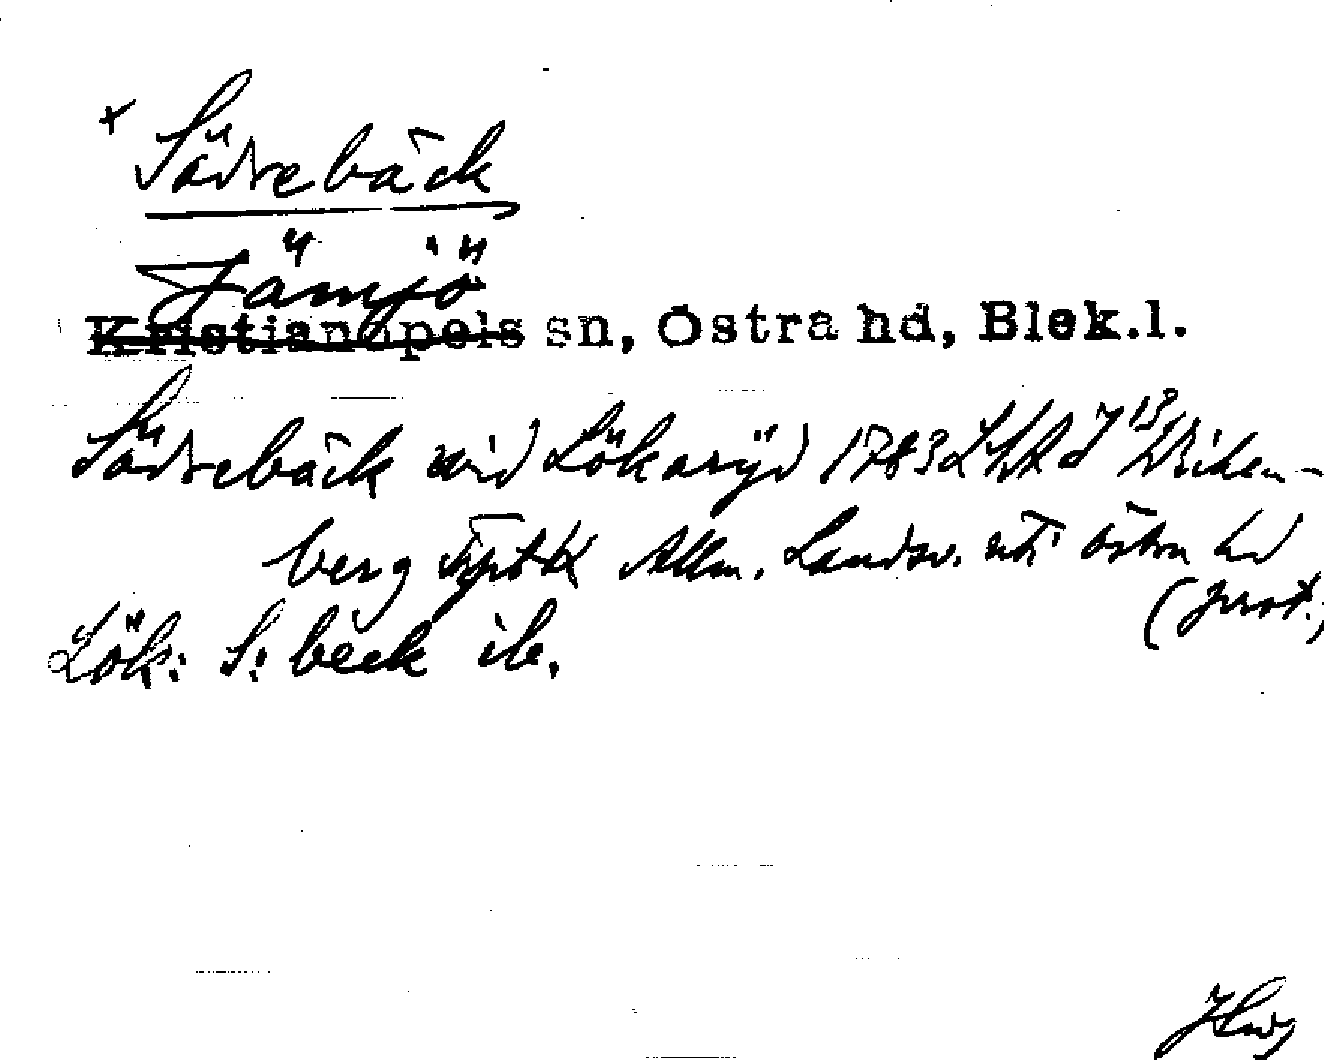 + Södrebäck
Jämjö
Kristianopels sn, Östra hd, Blek.l.
Södrebäck wid Lökarÿd 1783 LSA J 13 Wiken-
berg Allm. Landsv. uti östra hd
(prot.)
Lök: S: beck ib.